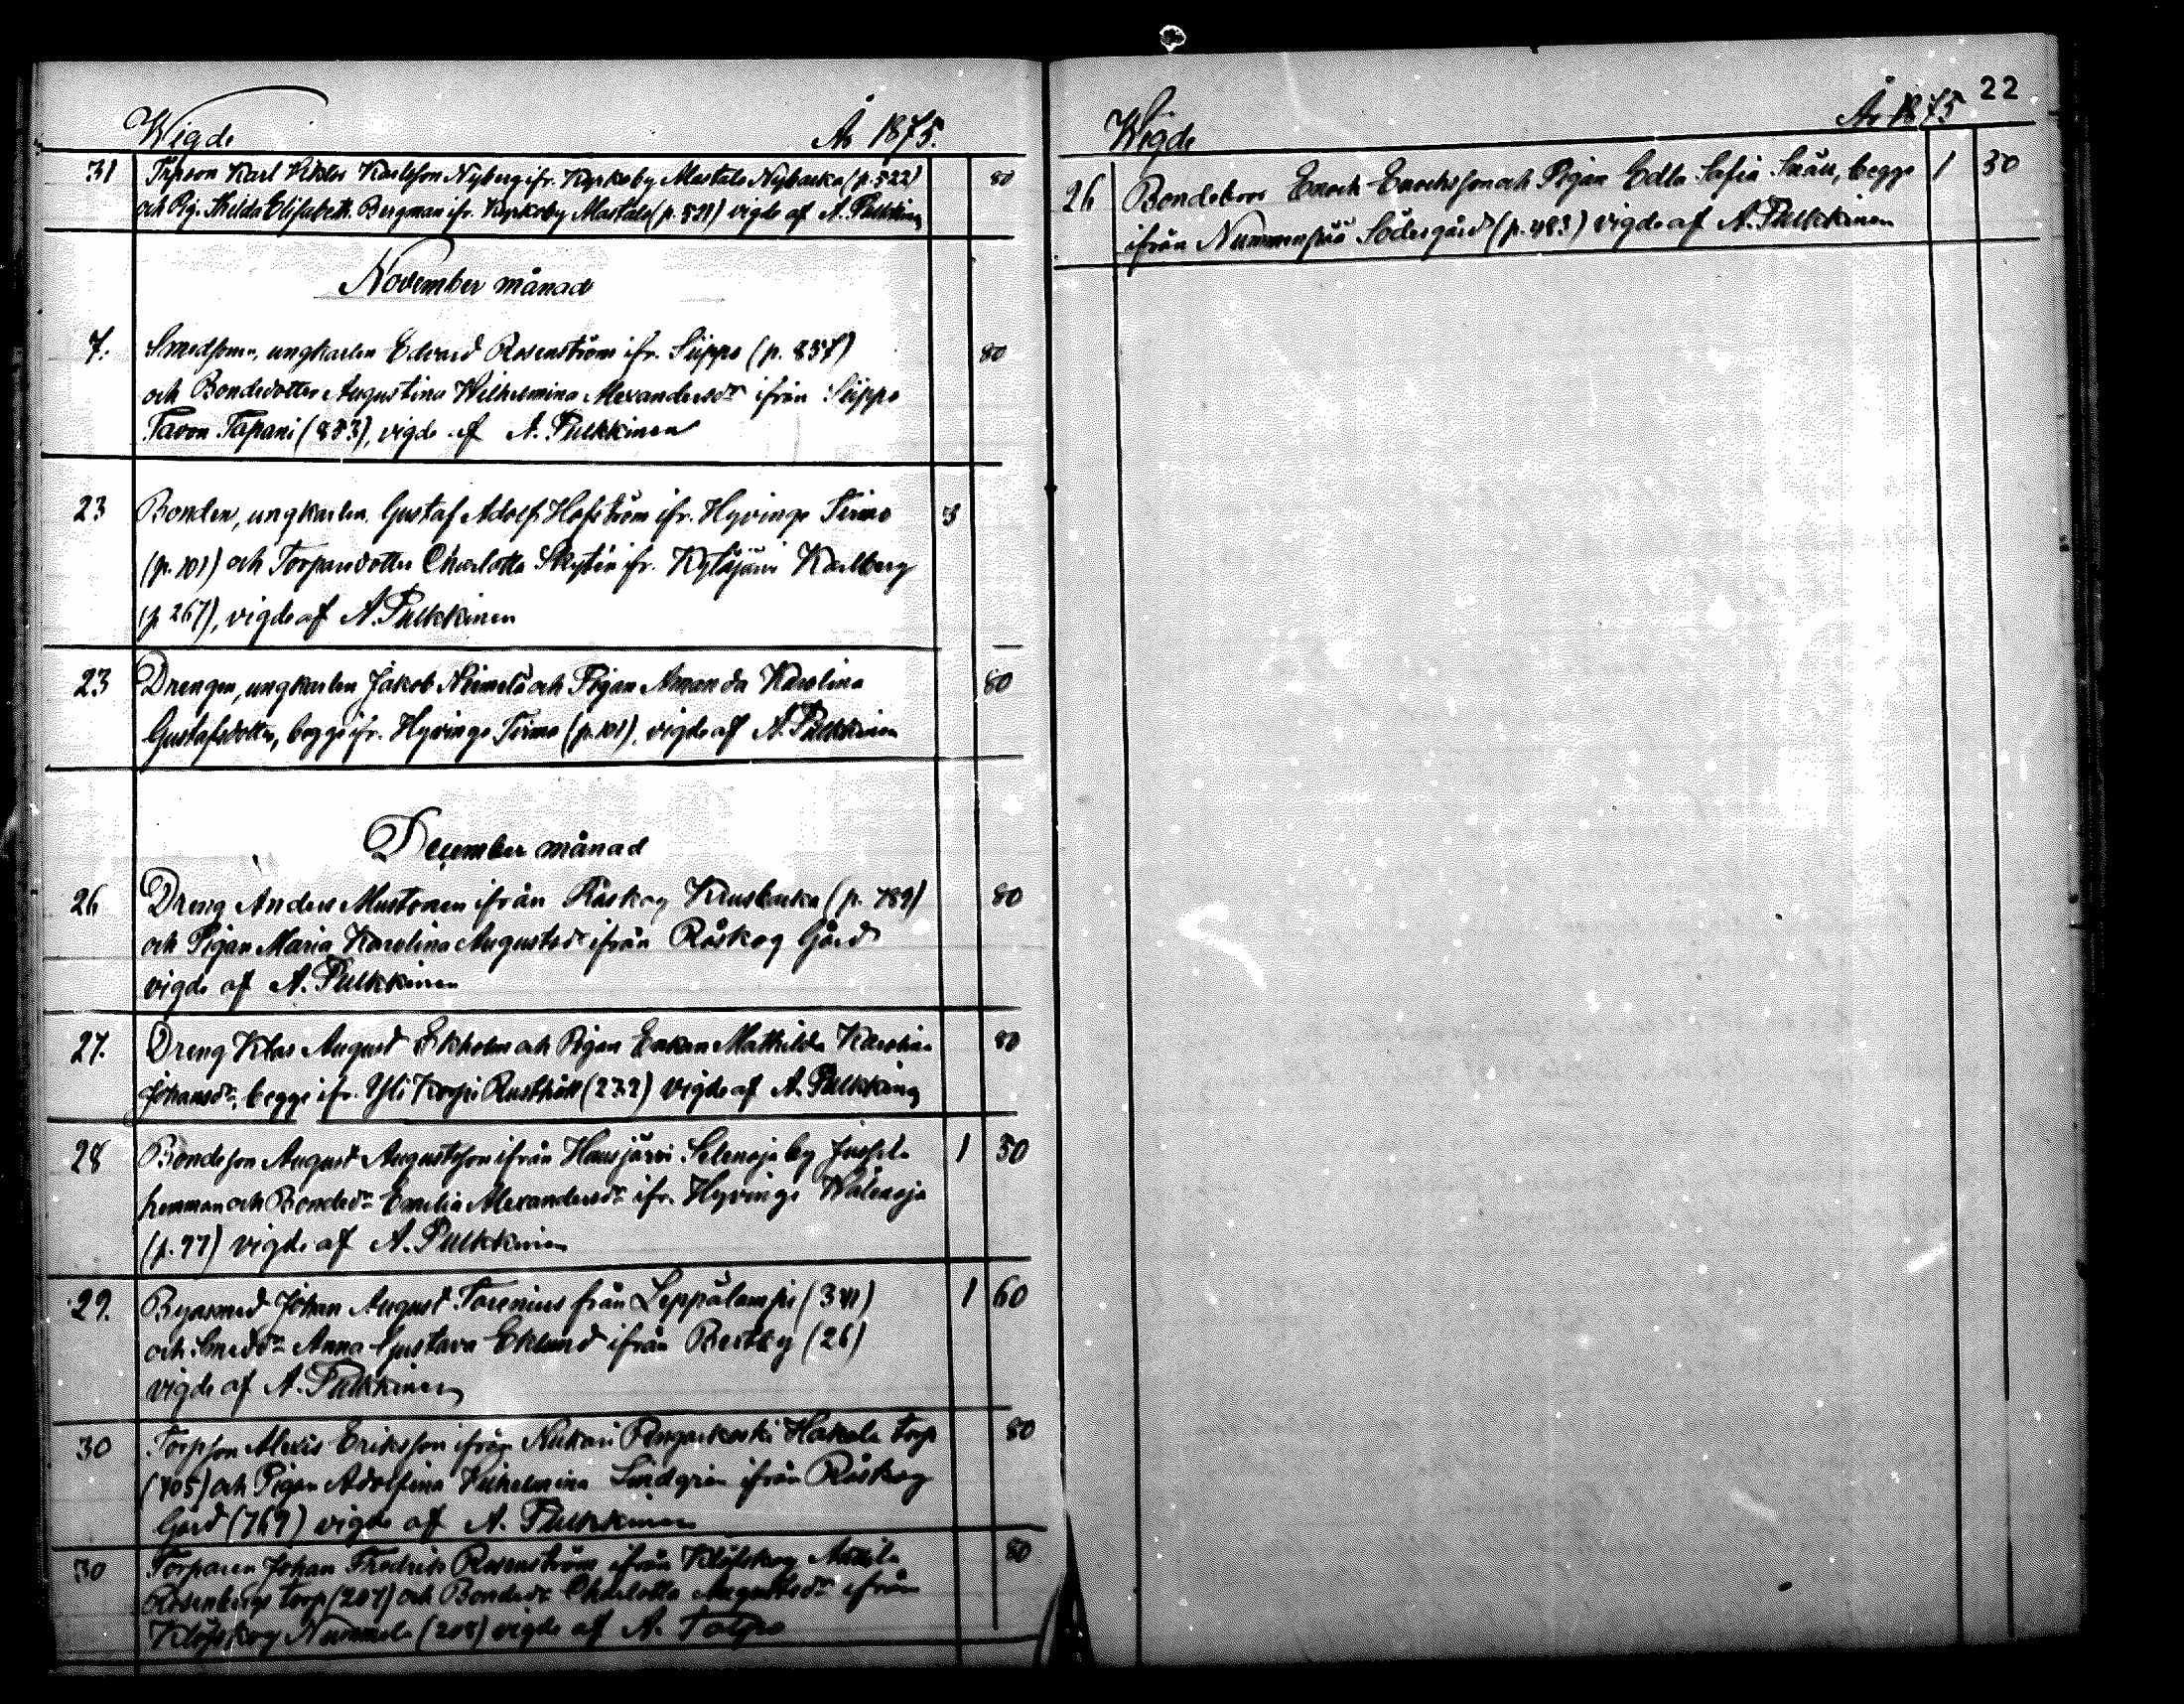 Wigde År 1875.
31 Torpson Karl Viktor Karlsson Nyberg ifr. Kyrkoby Mastale Nybacka (p. 522) 80
och Pig. Hilda Elisabeth Bergman ifr. Kyrkoby Mastale (p. 521) vigde af A. Pulkkinen
November månad
7. Smedsonen, ungkarlen Edvard Rosenström ifr. Siippo (p. 857) 80
och Bondedotter Augustina Wilhelmina Alexandersdr ifrån Siippo
Tavon Tapani (853), vigde af A. Pulkkinen
23 Bonden, ungkarlen Gustaf Adolf Hofström ifr. Hyvinge Tirmo 3
(p. 101) och Torparedotter Charlotta Skytén ifr. Kytäjärvi Karlberg
(p 267), vigde af A. Pulkkinen —
23 Drengen, ungkarlen Jakob Niemelä och Pigan Amanda Karolina 80
Gustafsdotter, begge ifr. Hyvinge Tirmo (p. 101), vigde af A. Pulkkinen
December månad
26 Dreng Anders Mustonen ifrån Råskog Krusbacka (p. 789) 80
och Pigan Maria Karolina Augustsdr ifrån Råskog Gård
vigde af A. Pulkkinen
27. Dreng Klas August Ekholm och Pigan Enkan Mathilda Karolina 80
Johansdr, begge ifr. Yli Korpi Rusthåll (232) vigde af A. Pulkkinen
28 Bondeson August Augustsson ifrån Hausjärvi Selenoja by Jussila 1 50
hemman och Bondedr Emelia Alexandersdr ifr. Hyvinge Walenoja
(p. 97) vigde af A. Pulkkinen
29. Bysmed Johan August Torenius från Leppälampi (341) 1 60
och Smeddr Anna Gustava Eklund ifrån Bertby (26)
vigde af A. Pulkkinen
30 Torpson Alexis Eriksson ifrån Nukari Raparkoski Hakala torp 80
(705) och Pigan Adolfina Vilhelmina Lindgrén ifrån Råskog
Gård (769) vigde af A. Pulkkinen
30 Torparen Johan Fredrik Rosenström ifrån Klöfskog Anttila 80
Rosenbergs torp (207) och Bondedr Charlotta Augustsdr ifrån
Klöfskog Nummela (208) vigde af A. Talpo
22
Wigde År 1875
26 Bondebror Enoch Enochsson och Pigan Edla Sofia Snäll, begge 1 50
ifrån Nummenpää Södergård (p. 483) vigde af A. Pulkkinen